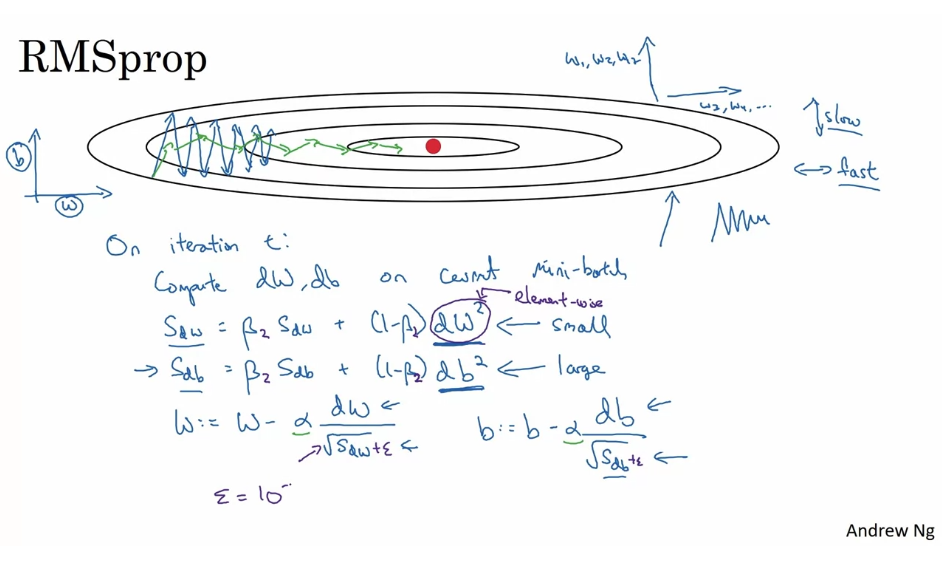 RMSprop
w₁, w₂, w₂
w₃, w₄, ...
↕ slow
↔ fast
b
w
On iteration t:
Compute dW, db on current mini-batch
element-wise
S_dw = β₂ S_dw + (1-β₂) dW² ← small
→ S_db = β₂ S_db + (1-β₂) db² ← large
W := W - α dW / √S_dw + ε ←
b := b - α db / √S_db + ε ←
ε = 10⁻
Andrew Ng